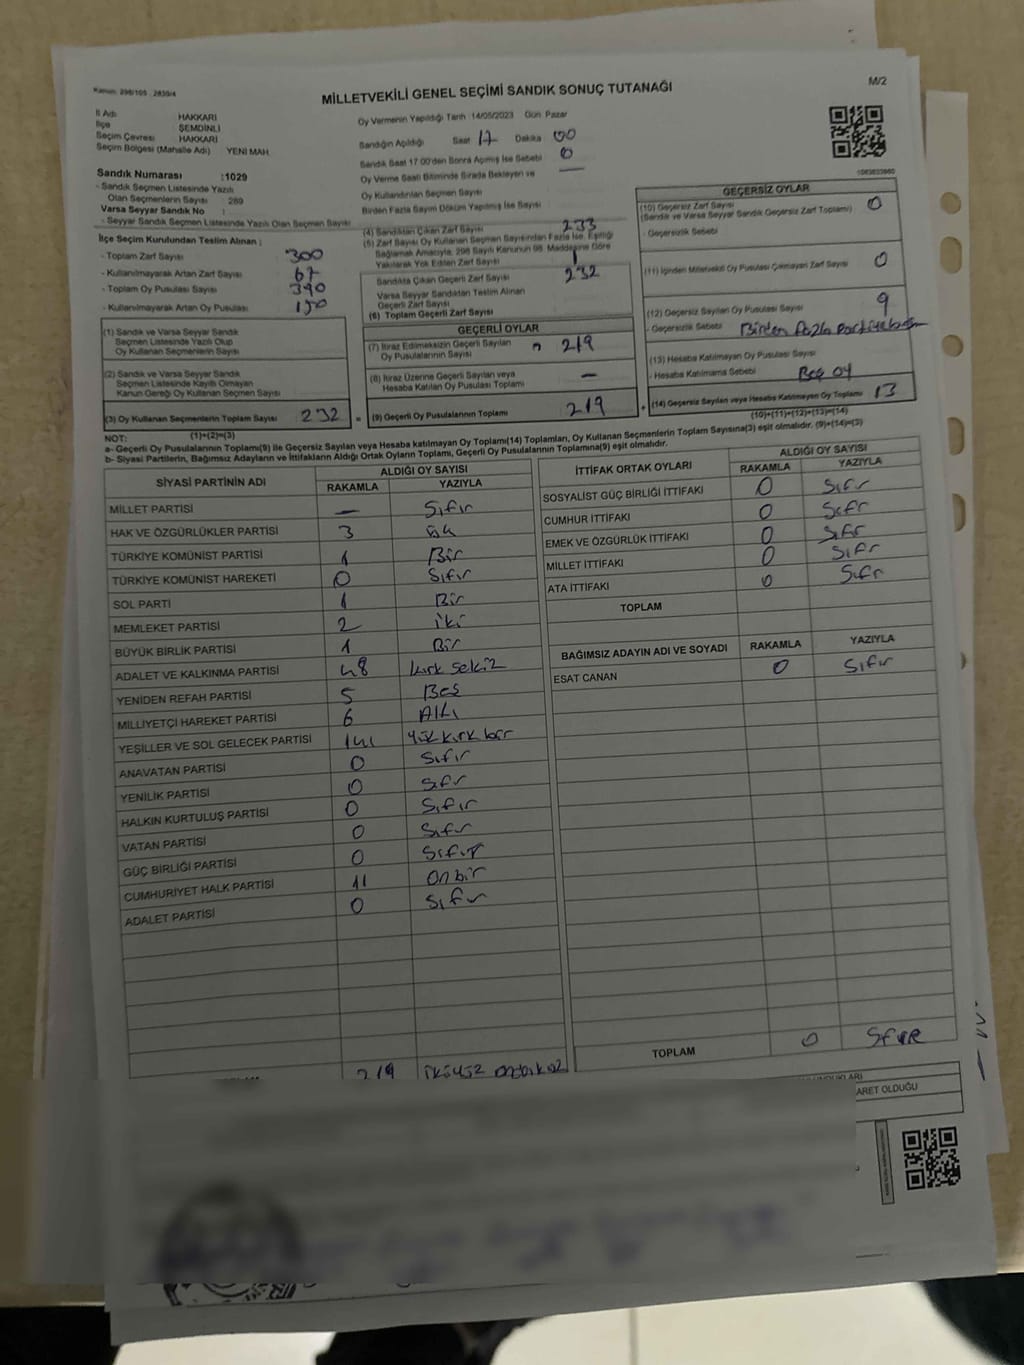 Kanun: 298/105 - 2839/4
M/2
MİLLETVEKİLİ GENEL SEÇİMİ SANDIK SONUÇ TUTANAĞI
İl Adı HAKKARİ
İlçe ŞEMDİNLİ
Seçim Çevresi HAKKARİ
Seçim Bölgesi (Mahalle Adı) YENİ MAH.
Sandık Numarası :1029
- Sandık Seçmen Listesinde Yazılı
Olan Seçmenlerin Sayısı : 289
Varsa Seyyar Sandık No :
- Seyyar Sandık Seçmen Listesinde Yazılı Olan Seçmen Sayısı
İlçe Seçim Kurulundan Teslim Alınan :
- Toplam Zarf Sayısı 300
- Kullanılmayarak Artan Zarf Sayısı 67
- Toplam Oy Pusulası Sayısı 390
- Kullanılmayarak Artan Oy Pusulası 150
(1) Sandık ve Varsa Seyyar Sandık
Seçmen Listesinde Yazılı Olup
Oy Kullanan Seçmenlerin Sayısı
(2) Sandık ve Varsa Seyyar Sandık
Seçmen Listesinde Kayıtlı Olmayan
Kanun Gereği Oy Kullanan Seçmen Sayısı
(3) Oy Kullanan Seçmenlerin Toplam Sayısı 232 =
(1)+(2)=(3)
Oy Vermenin Yapıldığı Tarih 14/05/2023 Gün Pazar
Sandığın Açıldığı Saat 17 Dakika 00
Sandık Saat 17:00'den Sonra Açılmış İse Sebebi 0
Oy Verme Saati Bitiminde Sırada Bekleyen ve —
Oy Kullandırılan Seçmen Sayısı
Birden Fazla Sayım Döküm Yapılmış İse Sayısı
(4) Sandıktan Çıkan Zarf Sayısı 233
(5) Zarf Sayısı Oy Kullanan Seçmen Sayısından Fazla İse, Eşitliği
Sağlamak Amacıyla, 298 Sayılı Kanunun 98. Maddesine Göre
Yakılarak Yok Edilen Zarf Sayısı 1
Sandıkta Çıkan Geçerli Zarf Sayısı 232
Varsa Seyyar Sandıktan Teslim Alınan
Geçerli Zarf Sayısı
(6) Toplam Geçerli Zarf Sayısı
GEÇERLİ OYLAR
(7) İtiraz Edilmeksizin Geçerli Sayılan
Oy Pusulalarının Sayısı 219
(8) İtiraz Üzerine Geçerli Sayılan veya
Hesaba Katılan Oy Pusulası Toplamı —
(9) Geçerli Oy Pusulalarının Toplamı 219 +
1083833960
GEÇERSİZ OYLAR
(10) Geçersiz Zarf Sayısı 0
(Sandık ve Varsa Seyyar Sandık Geçersiz Zarf Toplamı)
- Geçersizlik Sebebi
(11) İçinden Milletvekili Oy Pusulası Çıkmayan Zarf Sayısı 0
(12) Geçersiz Sayılan Oy Pusulası Sayısı 9
- Geçersizlik Sebebi Birden fazla partiye
(13) Hesaba Katılmayan Oy Pusulası Sayısı
- Hesaba Katılmama Sebebi Beş oy
(14) Geçersiz Sayılan veya Hesaba Katılmayan Oy Toplamı 13
(10)+(11)+(12)+(13)=(14)
NOT:
a- Geçerli Oy Pusulalarının Toplamı(9) ile Geçersiz Sayılan veya Hesaba katılmayan Oy Toplamı(14) Toplamları, Oy Kullanan Seçmenlerin Toplam Sayısına(3) eşit olmalıdır. (9)+(14)=(3)
b- Siyasi Partilerin, Bağımsız Adayların ve İttifakların Aldığı Ortak Oyların Toplamı, Geçerli Oy Pusulalarının Toplamına(9) eşit olmalıdır.
SİYASİ PARTİNİN ADI ALDIĞI OY SAYISI
RAKAMLA YAZIYLA
MİLLET PARTİSİ — Sıfır
HAK VE ÖZGÜRLÜKLER PARTİSİ 3
TÜRKİYE KOMÜNİST PARTİSİ 1 Bir
TÜRKİYE KOMÜNİST HAREKETİ 0 Sıfır
SOL PARTİ 1 Bir
MEMLEKET PARTİSİ 2 iki
BÜYÜK BİRLİK PARTİSİ 1 Bir
ADALET VE KALKINMA PARTİSİ 48 kırk sekiz
YENİDEN REFAH PARTİSİ 5 Beş
MİLLİYETÇİ HAREKET PARTİSİ 6 Altı
YEŞİLLER VE SOL GELECEK PARTİSİ 141 Yük kırk bir
ANAVATAN PARTİSİ 0 Sıfır
YENİLİK PARTİSİ 0 Sıfır
HALKIN KURTULUŞ PARTİSİ 0 Sıfır
VATAN PARTİSİ 0 Sıfır
GÜÇ BİRLİĞİ PARTİSİ 0 Sıfır
CUMHURİYET HALK PARTİSİ 11 Onbir
ADALET PARTİSİ 0 Sıfır
219 ikiyüz ondokuz
İTTİFAK ORTAK OYLARI ALDIĞI OY SAYISI
RAKAMLA YAZIYLA
SOSYALİST GÜÇ BİRLİĞİ İTTİFAKI 0 Sıfır
CUMHUR İTTİFAKI 0 Sıfır
EMEK VE ÖZGÜRLÜK İTTİFAKI 0 Sıfır
MİLLET İTTİFAKI 0 Sıfır
ATA İTTİFAKI 0 Sıfır
TOPLAM
BAĞIMSIZ ADAYIN ADI VE SOYADI RAKAMLA YAZIYLA
ESAT CANAN 0 Sıfır
TOPLAM 0 SIFIR
ARET OLDUĞU